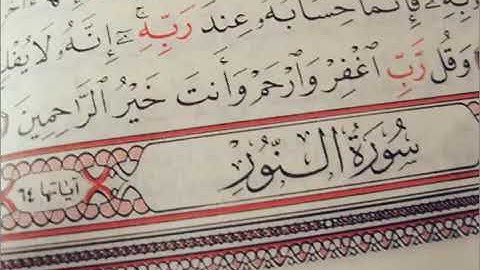 فَإِنَّمَا حِسَابُهُۥ عِندَ رَبِّهِۦٓ ۚ إِنَّهُۥ لَا يُفْلِ
وَقُل رَّبِّ ٱغْفِرْ وَٱرْحَمْ وَأَنتَ خَيْرُ ٱلرَّٰحِمِينَ
سُورَةُ النُّورِ
آياتها ٦٤